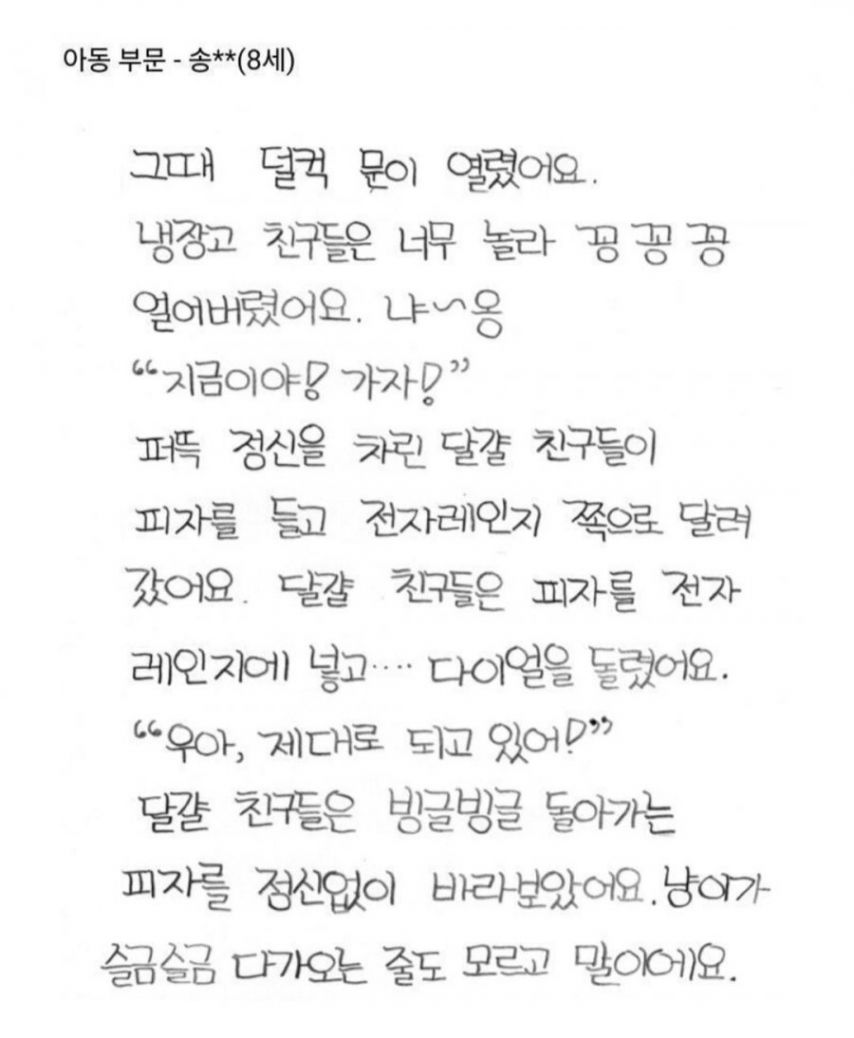 아동 부문 - 송**(8세)
그때 덜컥 문이 열렸어요.
냉장고 친구들은 너무 놀라 꽁 꽁 꽁
얼어버렸어요. 냐~옹
“지금이야! 가자!”
퍼뜩 정신을 차린 달걀 친구들이
피자를 들고 전자레인지 쪽으로 달려
갔어요. 달걀 친구들은 피자를 전자
레인지에 넣고···· 다이얼을 돌렸어요.
“우아, 제대로 되고 있어!”
달걀 친구들은 빙글빙글 돌아가는
피자를 정신없이 바라보았어요. 냥이가
슬금슬금 다가오는 줄도 모르고 말이에요.